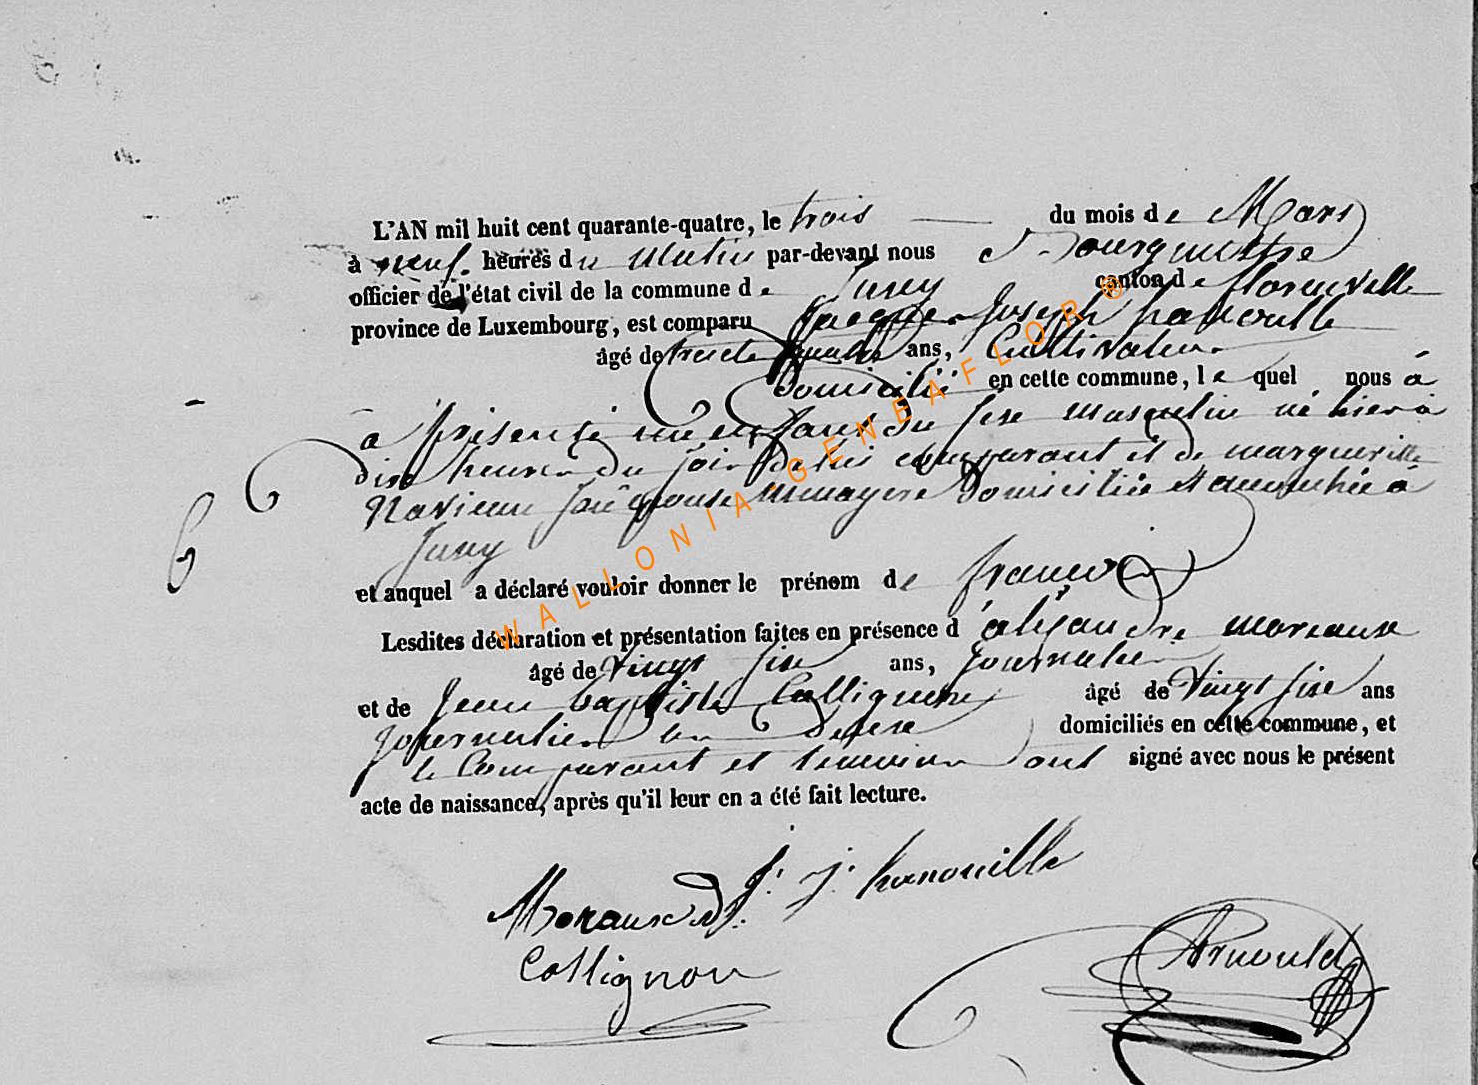 L'AN mil huit cent quarante-quatre, le trois du mois de Mars
à neuf heures du Matin par-devant nous Bourgmestre
officier de l'état civil de la commune de canton de florenville
province de Luxembourg, est comparu Jacques Joseph hanouille
âgé de trente ans, Cultivateur
Domicilié en cette commune, lequel nous à
a présenté un enfant du sexe masculin né hier à
dix heures du soir de lui comparant et de margueritte
son épouse menagere Domiciliée et à
et auquel a déclaré vouloir donner le prénom de françois
Lesdites déclaration et présentation faites en présence d'alexandre moreaux
âgé de vingt six ans, journalier
et de Jean baptiste Collignon âgé de vingt six ans
journalier domiciliés en cette commune, et
le Comparant et temoins ont signé avec nous le présent
acte de naissance, après qu'il leur en a été fait lecture.
J. J. hanouille
Moraux
Collignon
Arnould
WALLONIA-GENEAFLOR®